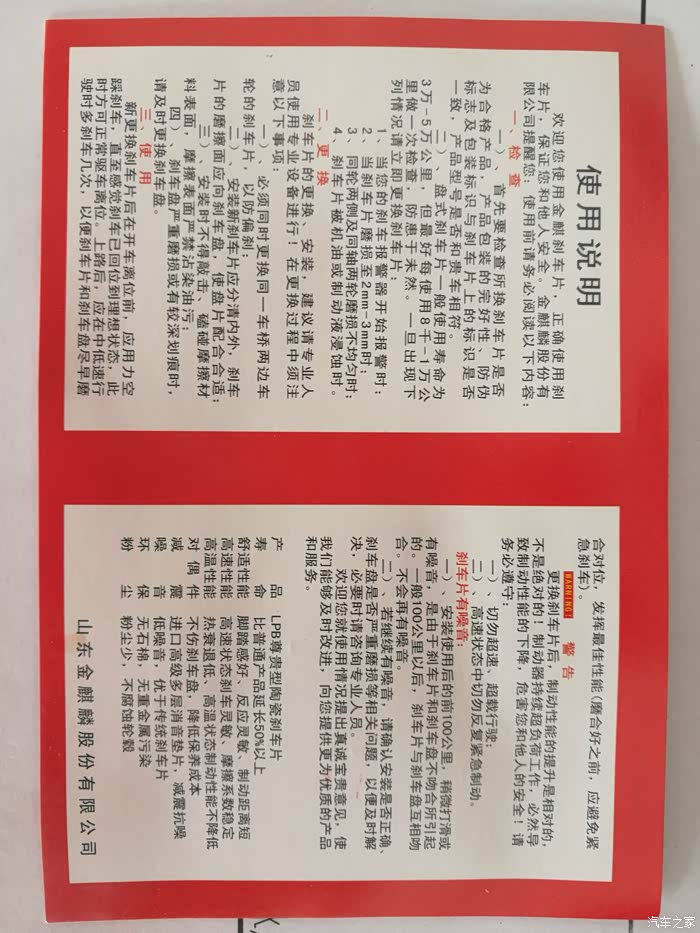 使用说明
欢迎您使用金麒刹车片，正确使用刹
车片，保证您和他人安全。金麒麟股份有
限公司提醒您：使用前请务必阅读以下内容：
一、检查
一）、首先要检查所换刹车片是否
为合格产品，产品包装的完好性、防伪
标志及包装标识与刹车片上的标识是否
一致，产品型号是否和贵车相符。
二）、盘式刹车片一般使用寿命为
3万-5万公里，但最好每使用8千-1万公
里做一次检查，防患于未然。一旦出现下
列情况请立即更换刹车片：
1、当您的刹车报警器开始报警时；
2、当刹车片磨损至2mm-3mm时；
3、同轮两侧及同轴两轮磨损不均匀时；
4、刹车片被机油或制动液浸蚀时。
二、更换
刹车片的更换、安装，建议请专业人
员使用专业设备进行！在更换过程中须注
意以下事项：
一）、必须同时更换同一车桥两边车
轮的刹车片，以防偏刹；
二）、安装新刹车片应分清内外，刹车
片的磨擦面应向刹车盘，使盘片配合合适；
三）、安装时不得敲击、磕碰摩擦材
料表面，摩擦表面严禁沾染油污；
四）、刹车盘严重磨损或有较深划痕时，
请及时更换刹车盘。
三、使用
新更换刹车片后在开车离位前，应用力空
踩刹车，直至感觉刹车已回位到理想状态，此
时方可正常驱车离位。上路后，应在中低速行
驶时多刹车几次，以便刹车片和刹车盘尽早磨
合对位，发挥最佳性能（磨合好之前，应避免紧
急刹车）。
WARNING! 警告
更换刹车片后，制动性能的提升是相对的，
不是绝对的！制动器持续超负荷工作，必然导
致制动性能的下降，危害您和他人的安全！请
务必遵守：
一）、切勿超速、超载行驶；
二）、高速状态中切勿反复紧急制动。
刹车片有噪音：
一）、安装使用后的前100公里，稍微打滑或
有噪音，是由于刹车片和刹车盘不吻合所引起
的。一般100公里以后，刹车片与刹车盘互相吻
合。不会再有噪音。
二）、若继续有噪音，请确认安装是否正确、
刹车盘是否严重磨损等相关问题，以便及时解
决，必要时请咨询专业人员。
欢迎您就使用情况提出真诚宝贵意见，使
我们能够及时改进，向您提供更为优质的产品
和服务。
产品 LPB尊贵型陶瓷刹车片
寿命 比普通产品延长50%以上
舒适性能 脚踏感好、反应灵敏、制动距离短
高速性能 高速状态刹车灵敏、摩擦系数稳定
高温性能 热衰退低、高温状态制动性能不降低
对偶件 不伤刹车盘，降低保养成本
减震 进口高级多层消音垫片，减震抗噪
噪音 低噪音，优于传统刹车片
环保 无石棉，无重金属污染
粉尘 粉尘少，不腐蚀轮毂
山东金麒麟股份有限公司
汽车之家